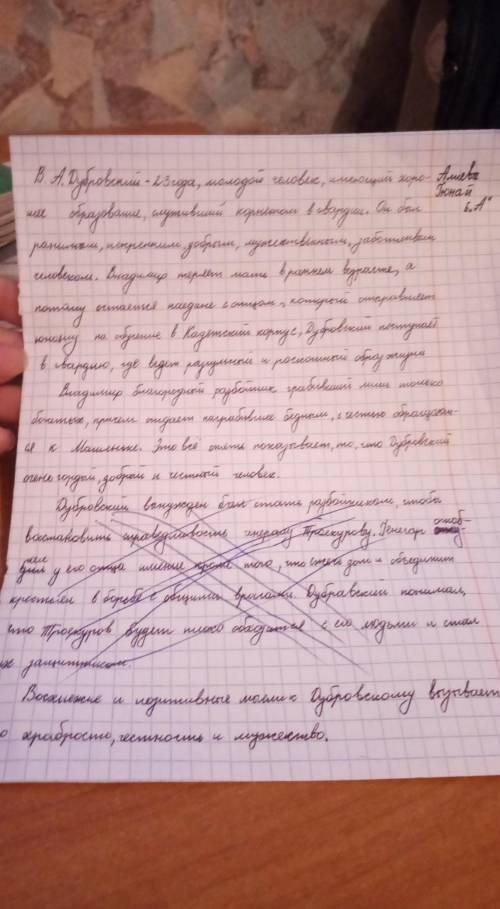 В. А. Дубровский - 23 года, молодой человек, имеющий хоро-
шее образование, служивший корнетом в гвардии. Он был
ранимым, искренним, добрым, мужественным, заботливым
человеком. Владимир теряет мать в раннем возрасте, а
потому остается наедине с отцом, который отправляет
юношу на обучение в Кадетский корпус, Дубровский поступает
в гвардию, где ведет разгульный и роскошный образ жизни
Владимир благородный разбойник грабивший лишь только
богатых, причем отдает награбленное бедным, с честью обращал-
ся к Машеньке. Это всё опять показывает, то, что Дубровский
очень гордый, добрый и честный человек.
Дубровский вынужден был стать разбойником, чтобы
восстановить справедливость генералу Троекурову. Генерал
у его отца имение кроме того, что стал зол и объединил
крестьян в борьбе с общими врагами. Дубравский понимал,
что Троекуров будет плохо обходится с его людьми и стал
их защитником.
и позитивные мысли к Дубровскому вызывает
храбрость, честность и мужество.
Алиева
6 „А"